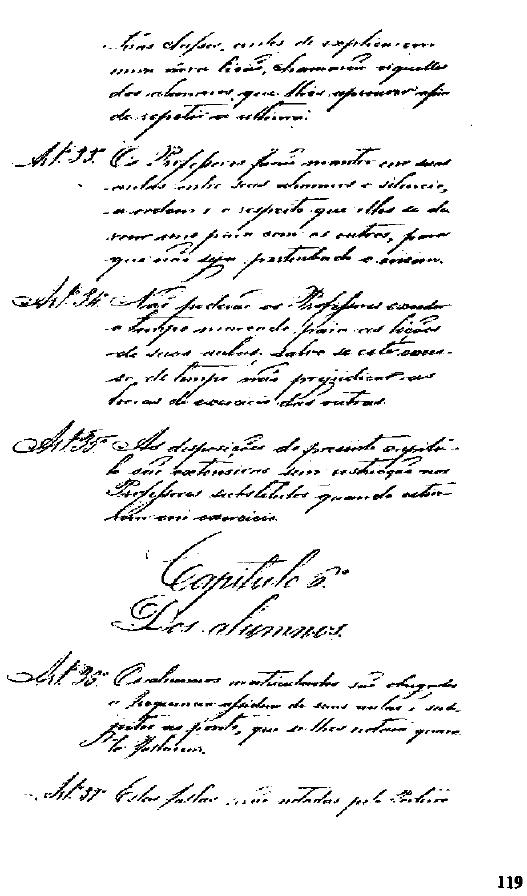 suas classes, antes de explicarem
uma nova lição, chamarão aquelles
dos alumnos que lhes aprouver afim
de repetir a ultima.
Art.º 33.º Os Professores farão manter em suas
aulas entre seus alumnos o silencio,
a ordem e o respeito que elles se de
vem uns para com os outros, para
que não seja perturbado o ensino.
Art.º 34.º Não poderão os Professores exceder
o tempo marcado para as lições
de suas aulas, salvo se este exces-
so de tempo não prejudicar as
horas de exercicio das outras.
Art.º 35.º As disposições do presente capitu-
lo são extensivas sem restricção aos
Professores substitutos quando esti-
verem em exercicio.
Capitulo 6.º
Dos alumnos.
Art.º 36.º Os alumnos matriculados são obrigados
a frequencia assidua de suas aulas e sub-
jeitos ao ponto, que se lhes notará quan
to faltarem.
Art.º 37.º Estas faltas serão notadas pelo Porteiro
119